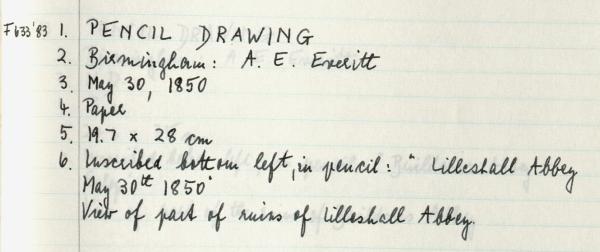 F633'83 1. PENCIL DRAWING
2. Birmingham: A. E. Everitt
3. May 30, 1850
4. Paper
5. 19.7 x 28 cm
6. Inscribed bottom left, in pencil: " Lilleshall Abbey
May 30th 1850"
View of part of ruins of Lilleshall Abbey.